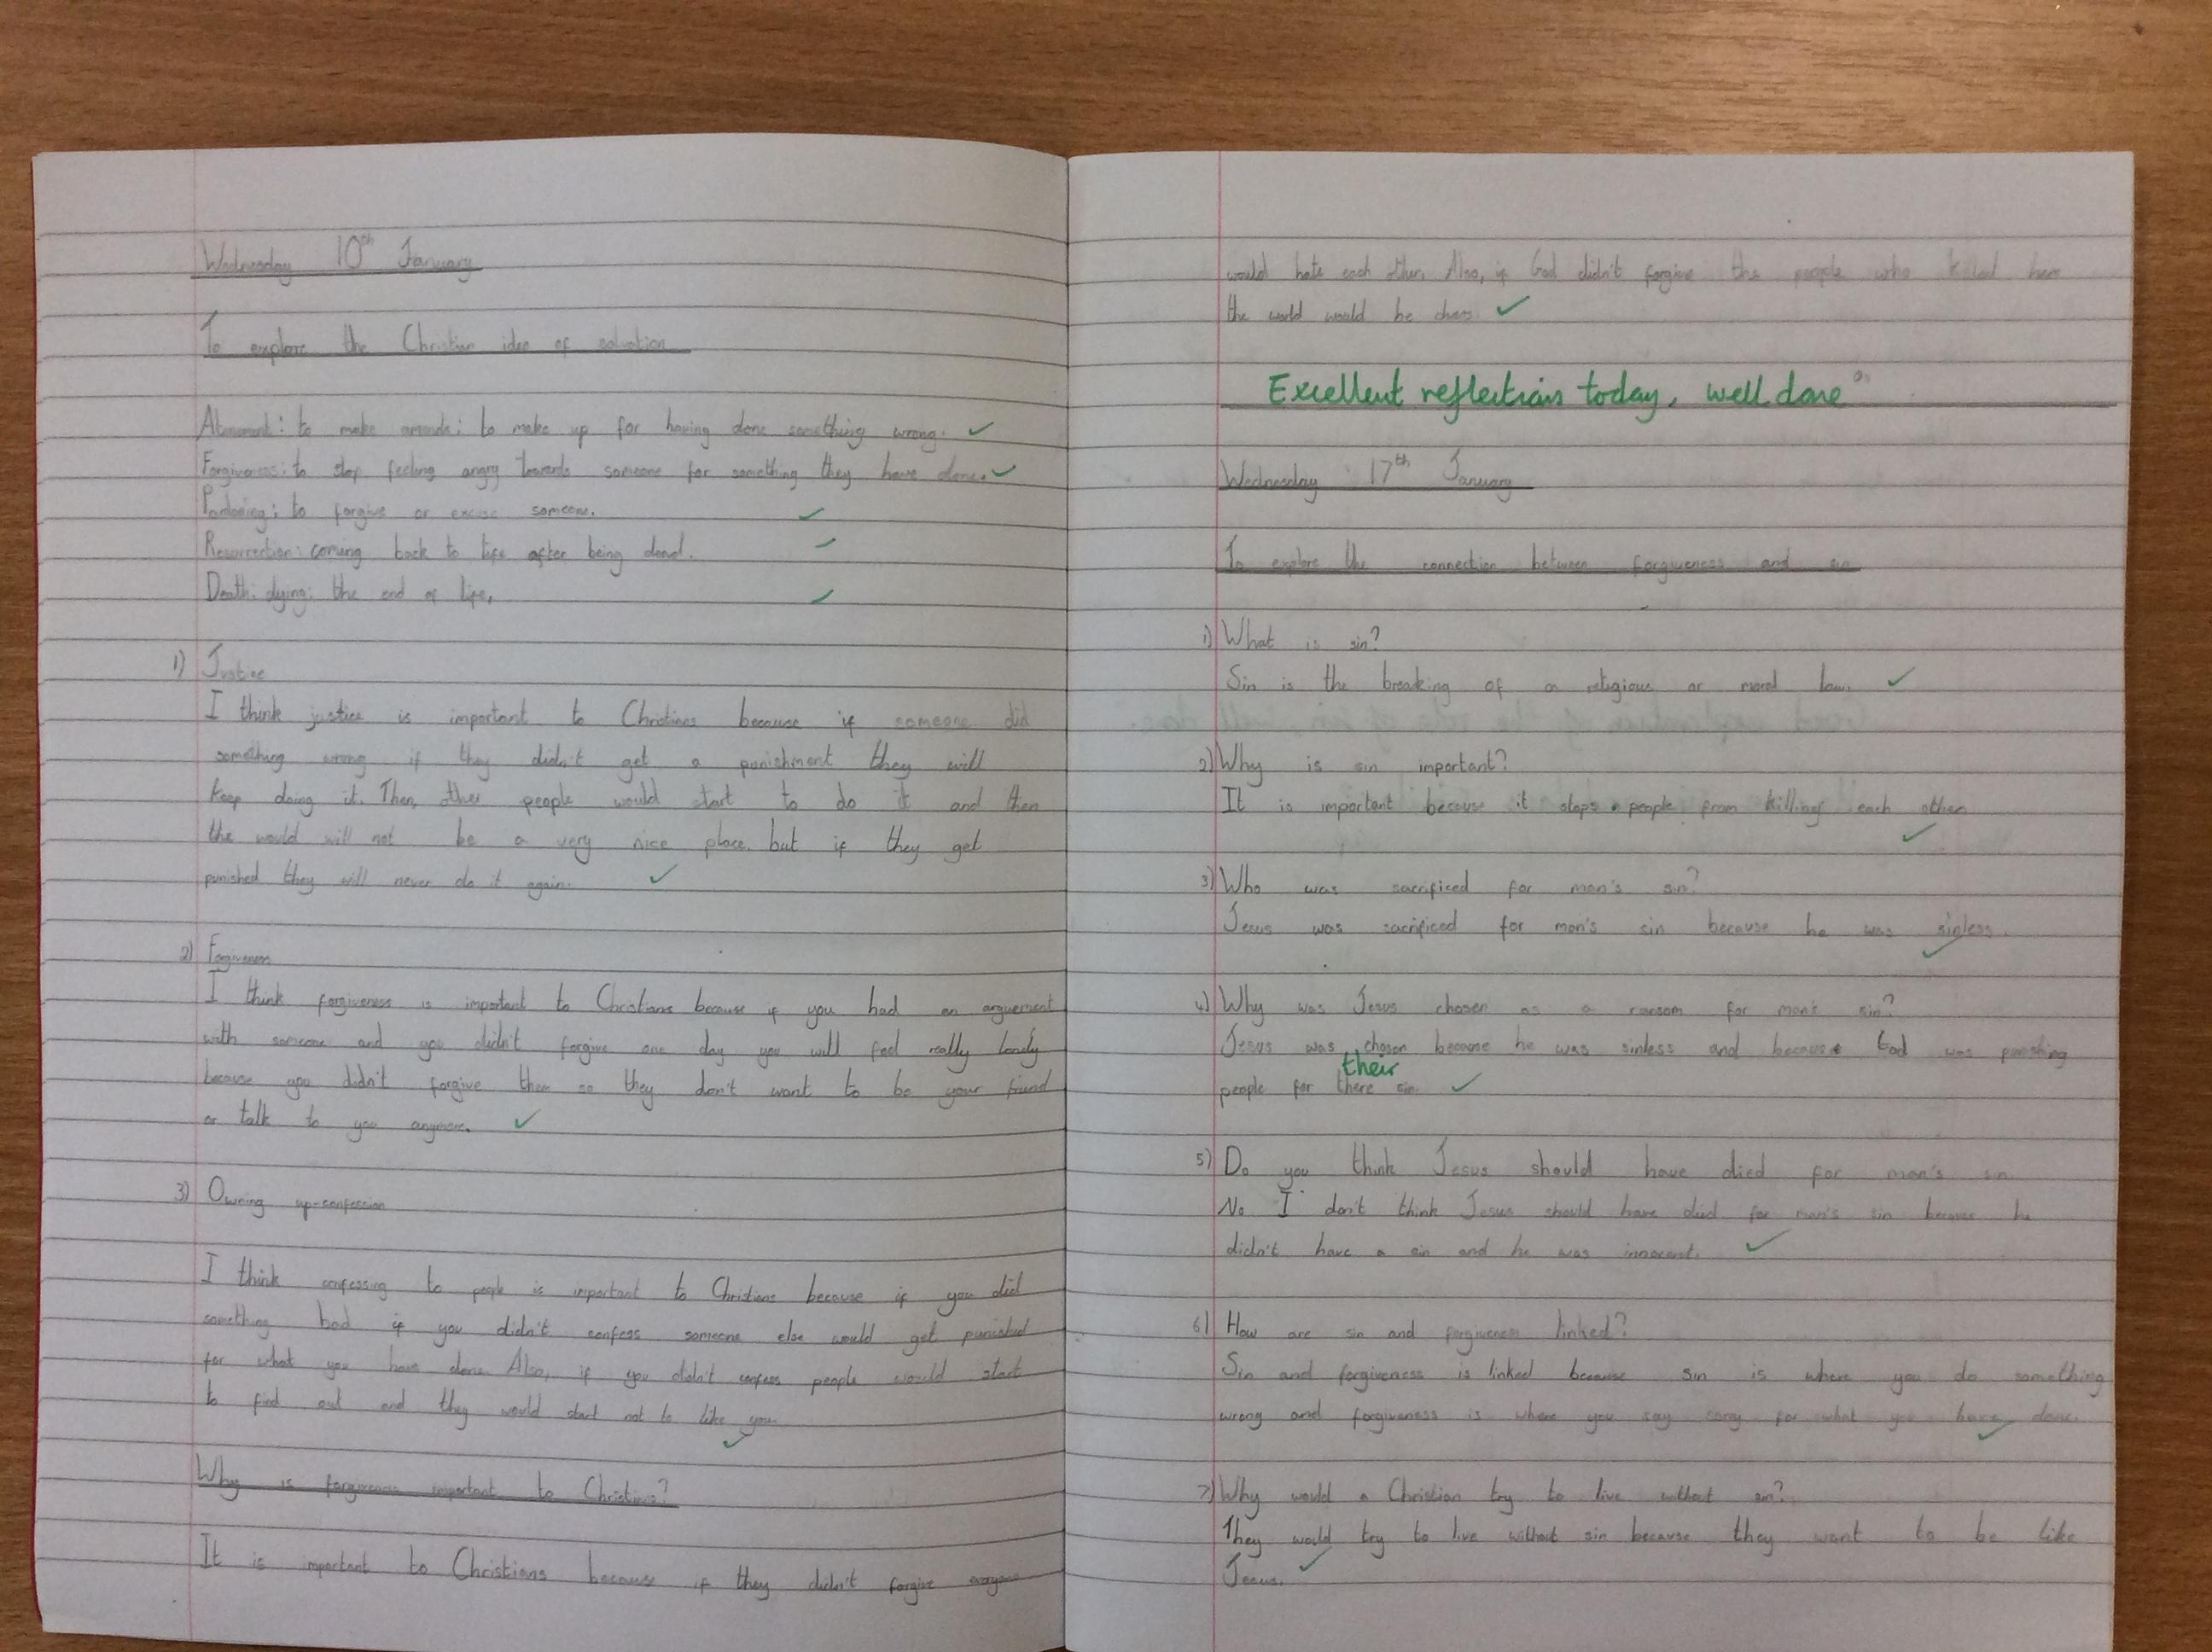 Wednesday 10th January
To explore the Christian idea of salvation
Atonement: to make amends: to make up for having done something wrong.
Forgiveness: to stop feeling angry towards someone for something they have done.
Pardoning: to forgive or excuse someone.
Resurrection: coming back to life after being dead.
Death: dying: the end of life.
1) Justice
I think justice is important to Christians because if someone did
something wrong if they didn't get a punishment they will
keep doing it. Then, other people would start to do it and then
the would will not be a very nice place. but if they get
punished they will never do it again.
2) Forgiveness
I think forgiveness is important to Christians because if you had an arguement
with someone and you didn't forgive one day you will feel really lonely
because you didn't forgive them so they don't want to be your friend
or talk to you anymore.
3) Owning up-confession
I think confessing to people is important to Christians because if you did
something bad if you didn't confess someone else would get punished
for what you have done. Also, if you didn't confess people would start
to find out and they would start not to like you.
Why is forgiveness important to Christians?
It is important to Christians because if they didn't forgive everyone
would hate each other. Also, if God didn't forgive the people who killed
the world would be
Excellent reflections today, well done
Wednesday 17th January
To explore the connection between forgiveness and sin
1) What is sin?
Sin is the breaking of a religious or moral law.
2) Why is sin important?
It is important because it stops people from killing each other
3) Who was sacrificed for man's sin?
Jesus was sacrificed for man's sin because he was sinless.
4) Why was Jesus chosen as a ransom for man's sin?
Jesus was chosen because he was sinless and because God was punishing
their
people for there sin.
5) Do you think Jesus should have died for man's sin
No I don't think Jesus should have died for man's sin because he
didn't have a sin and he was innocent.
6) How are sin and forgiveness linked?
Sin and forgiveness is linked because sin is where you do something
wrong and forgiveness is where you say sorry for what you have done.
7) Why would a Christian try to live without sin?
They would try to live without sin because they want to be like
Jesus.